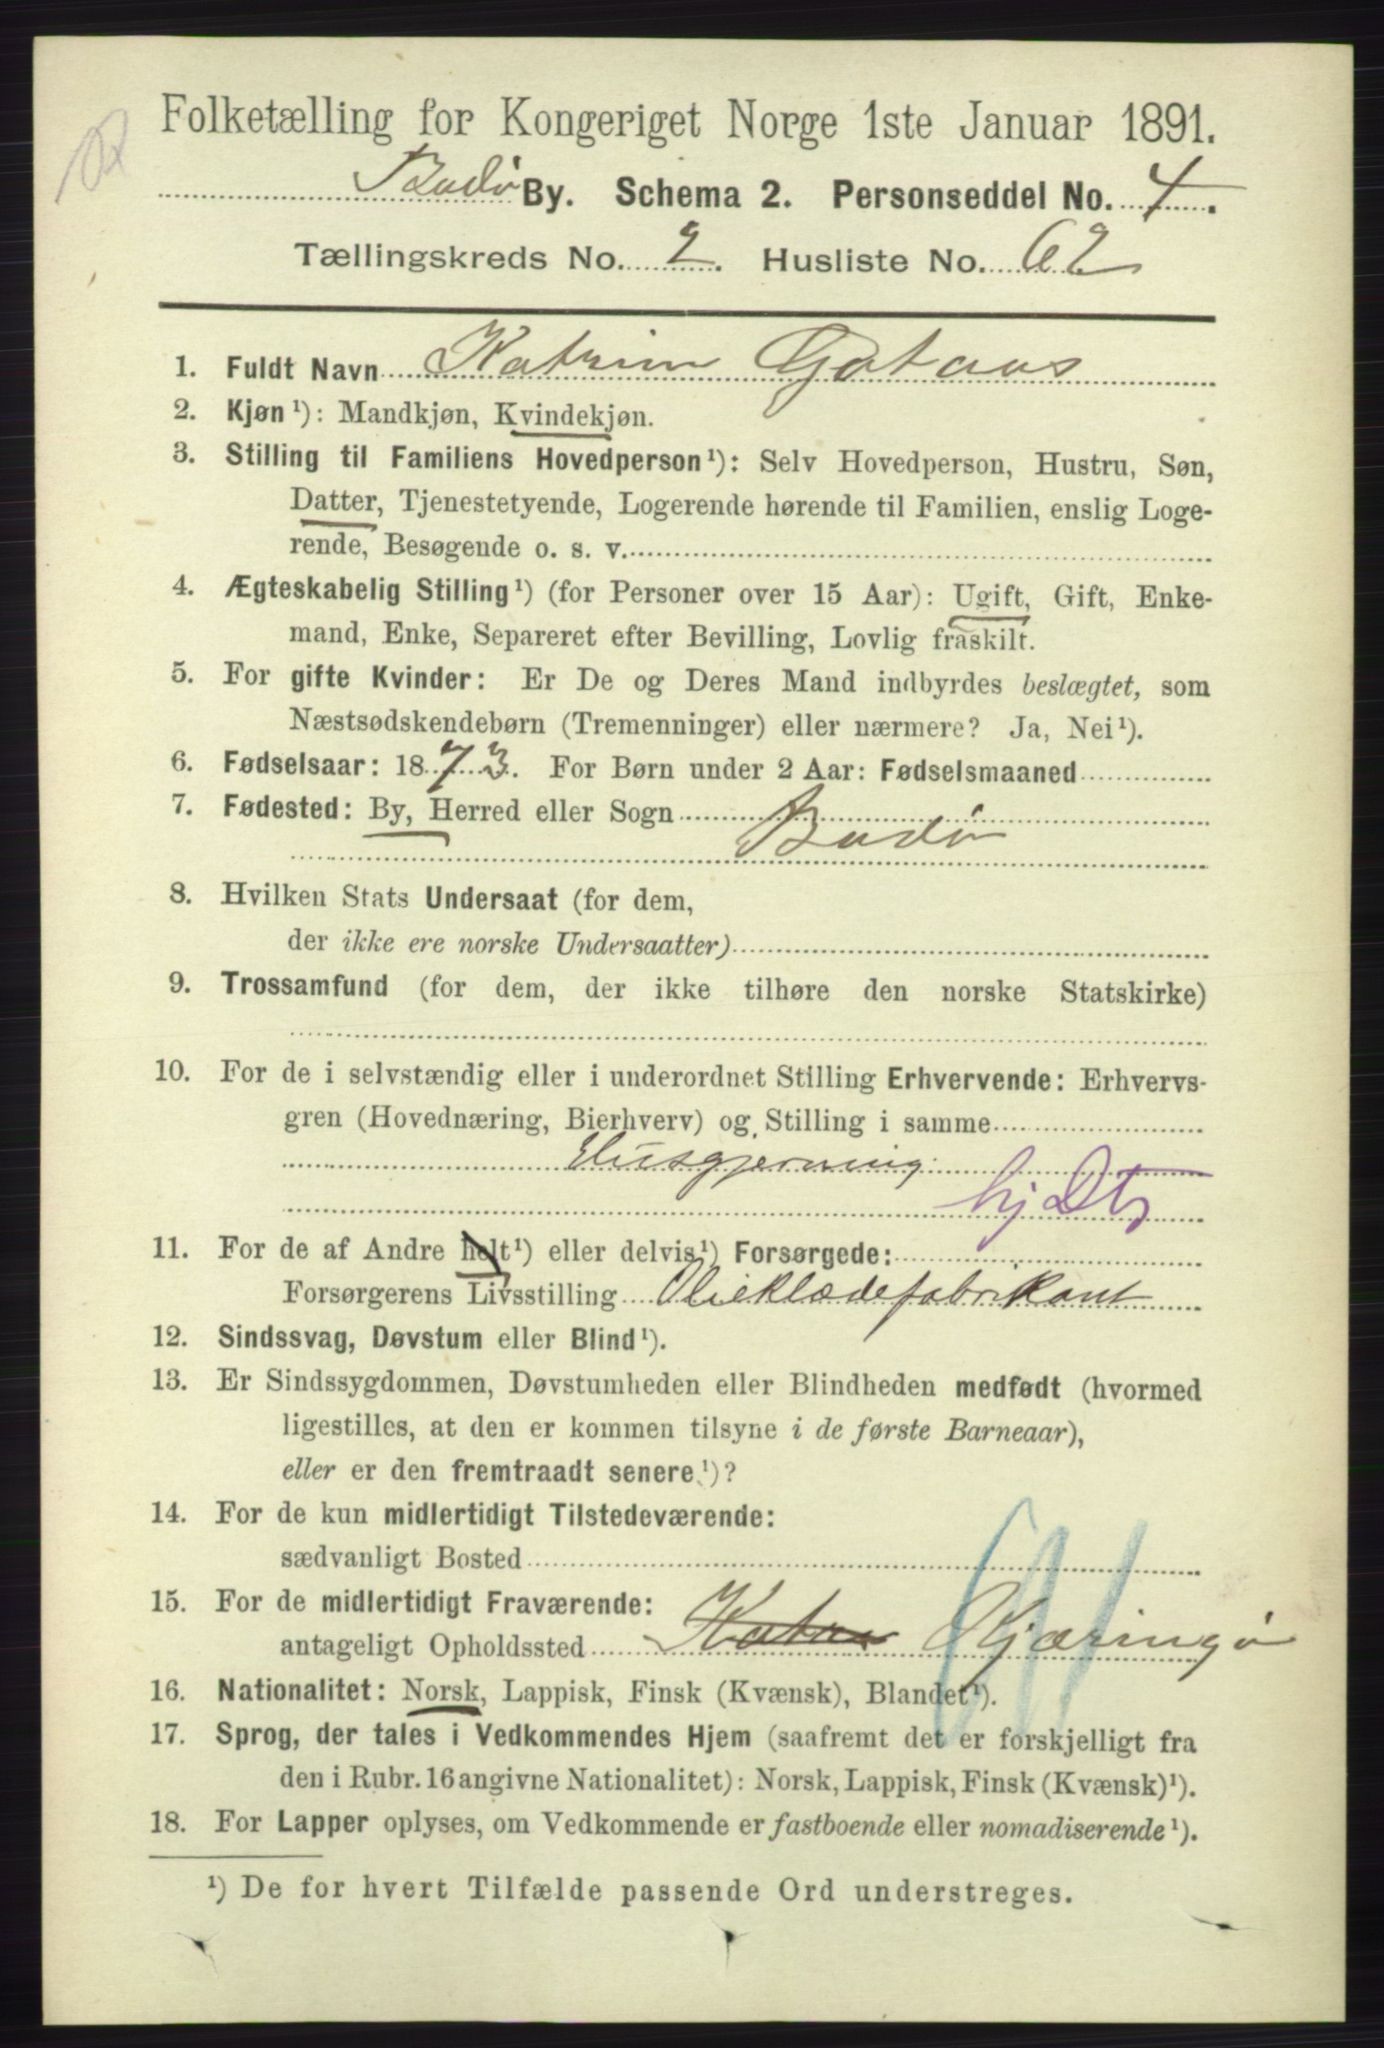 Folketælling for Kongeriget Norge 1ste Januar 1891.
Bodø By. Schema 2. Personseddel No. 4.
Tællingskreds No. 2. Husliste No. 62
1. Fuldt Navn Katrin Gotaas
2. Kjøn ¹): Mandkjøn, Kvindekjøn.
3. Stilling til Familiens Hovedperson ¹): Selv Hovedperson, Hustru, Søn,
Datter, Tjenestetyende, Logerende hørende til Familien, enslig Loge-
rende, Besøgende o. s. v.
4. Ægteskabelig Stilling ¹) (for Personer over 15 Aar): Ugift, Gift, Enke-
mand, Enke, Separeret efter Bevilling, Lovlig fraskilt.
5. For gifte Kvinder: Er De og Deres Mand indbyrdes beslægtet, som
Næstsødskendebørn (Tremenninger) eller nærmere? Ja, Nei ¹).
6. Fødselsaar: 1873. For Børn under 2 Aar: Fødselsmaaned
7. Fødested: By, Herred eller Sogn Bodø
8. Hvilken Stats Undersaat (for dem,
der ikke ere norske Undersaatter)
9. Trossamfund (for dem, der ikke tilhøre den norske Statskirke)
10. For de i selvstændig eller i underordnet Stilling Erhvervende: Erhvervs-
gren (Hovednæring, Bierhverv) og Stilling i samme
Husgjerning
hj Dtr
11. For de af Andre helt ¹) eller delvis ¹) Forsørgede:
Forsørgerens Livsstilling Olieklædefabrikant
12. Sindssvag, Døvstum eller Blind ¹).
13. Er Sindssygdommen, Døvstumheden eller Blindheden medfødt (hvormed
ligestilles, at den er kommen tilsyne i de første Barneaar),
eller er den fremtraadt senere ¹)?
14. For de kun midlertidigt Tilstedeværende:
sædvanligt Bosted
15. For de midlertidigt Fraværende:
antageligt Opholdssted Kjæringø
16. Nationalitet: Norsk, Lappisk, Finsk (Kvænsk), Blandet ¹).
17. Sprog, der tales i Vedkommendes Hjem (saafremt det er forskjelligt fra
den i Rubr. 16 angivne Nationalitet): Norsk, Lappisk, Finsk (Kvænsk) ¹).
18. For Lapper oplyses, om Vedkommende er fastboende eller nomadiserende ¹).
¹) De for hvert Tilfælde passende Ord understreges.